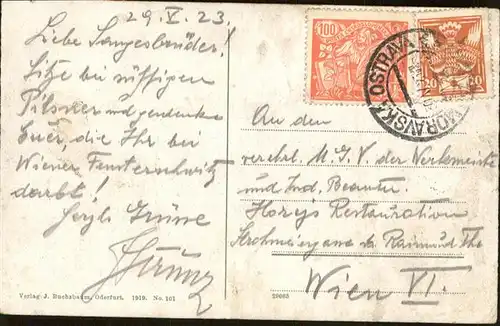 29.V.23.
Liebe Sangesbrüder!
Sitze bei süffigen
Pilsner und gedenke
Euer, die Ihr bei
Wiener Fensterschwitz
darbt!
Herzl. Grüsse
100
20
20
MORAVSKÁ OSTRAVA
An den
verehrl. M.G.V. der Werkmeister
und Ind. Beamten
Horejs Restauration
Wien VI.
Verlag J. Buchsbaum, Oderfurt. 1919. No. 101